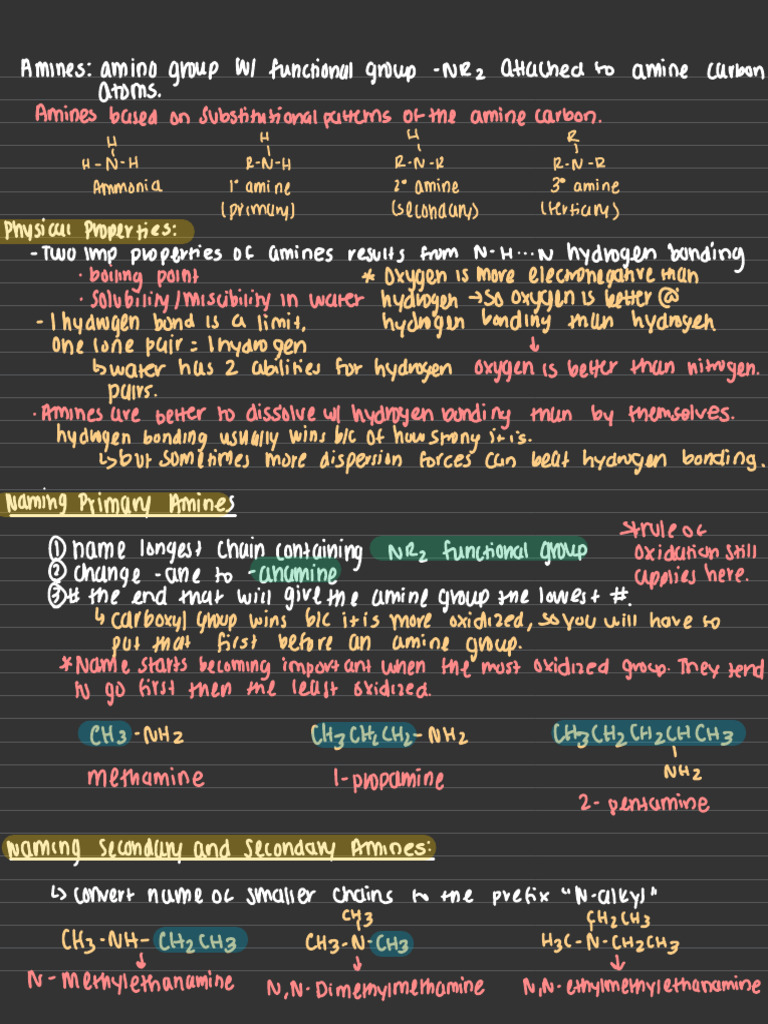 Amines: amino group w/ functional group -NR2 attached to amine carbon
atoms.
Amines based on substitutional patterns of the amine carbon.
H H H R
H-N-H R-N-H R-N-R R-N-R
Ammonia 1° amine 2° amine 3° amine
(primary) (secondary) (tertiary)
Physical Properties:
-Two imp properties of amines results from N-H···N hydrogen bonding
· boiling point
· solubility/miscibility in water
* Oxygen is more electronegative than
hydrogen → so oxygen is better @
hydrogen bonding than hydrogen
↓
oxygen is better than nitrogen.
- 1 hydrogen bond is a limit,
one lone pair = 1 hydrogen
↳ water has 2 abilities for hydrogen
pairs.
· Amines are better to dissolve w/ hydrogen bonding than by themselves.
hydrogen bonding usually wins b/c of how strong it is.
↳ but sometimes more dispersion forces can beat hydrogen bonding.
Naming Primary Amines
① name longest chain containing NR2 functional group
② change -ane to -anamine
③ # the end that will give the amine group the lowest #.
*rule of
oxidation still
applies here.
↳ carboxyl group wins b/c it is more oxidized, so you will have to
put that first before an amine group.
*Name starts becoming important when the most oxidized group. They tend
to go first then the least oxidized.
CH3-NH2 CH3CH2CH2-NH2 CH3CH2CH2CHCH3
NH2
methamine 1-propamine 2-pentamine
Naming Secondary and Secondary Amines:
↳ convert name of smaller chains to the prefix "N-alkyl"
CH3 CH2CH3
CH3-NH-CH2CH3 CH3-N-CH3 H3C-N-CH2CH3
↓ ↓ ↓
N-Methylethanamine N,N-Dimethylmethamine N,N-ethylmethylethanamine